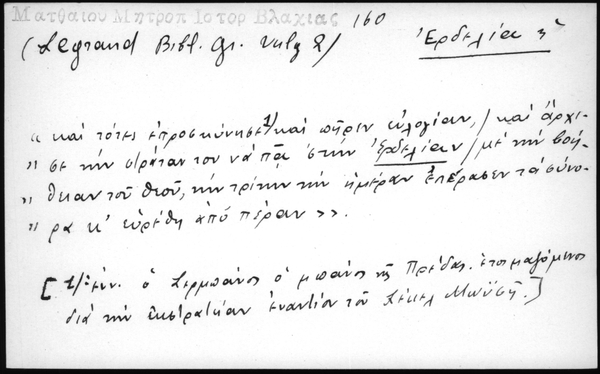 Ματθαίου Μητροπ Ιστορ Βλαχιας 160
(Legrand Bibl. Gr. Vulg 2/ Ἐρδελία ἡ
« καὶ τότες ἐπροσκύνησε 1/ καὶ πῆρεν εὐλογίαν, / καὶ ἄρχι-
" σε τὴν στράταν του νὰ πᾶ 'ς τὴν Ἐρδελίαν / μὲ τὴν βοή-
" θειαν τοῦ θεοῦ, τὴν τρίτην τὴν ἡμέραν ἐπέρασεν τὰ σύνο-
" ρα κ' εὑρέθη ἀπὸ πέραν ».
[1/ ἐνν. ὁ Σερμπάνος ὁ μπάνος τῆς Πρέδας. ἑτοιμαζόμενος
διὰ τὴν ἐκστρατείαν ἐναντίον τοῦ Σέκελ Μωϋσῆ.]